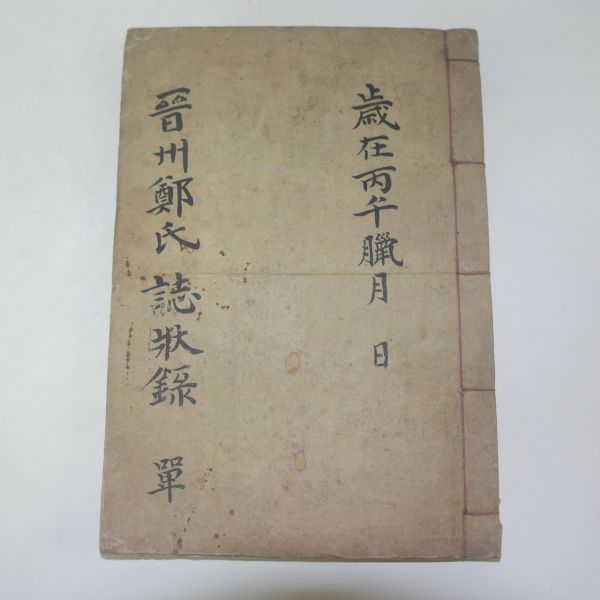 歲在丙午臘月 日
晉州鄭氏誌狀錄 單